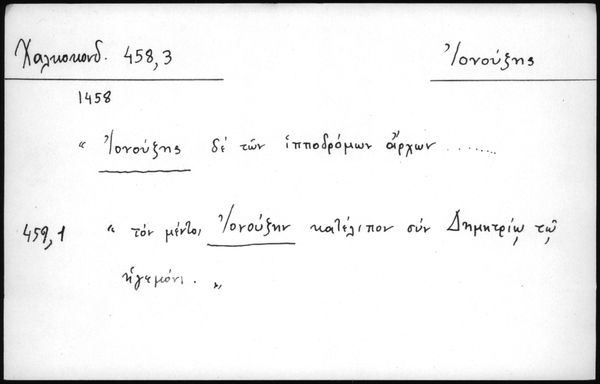 Χαλκοκονδ. 458,3 Ἰονούξης
1458
“ Ἰονούξης δέ τῶν ἱπποδρόμων ἄρχων ........
459,1 “ τόν μέντοι Ἰονούξην κατέλιπον σύν Δημητρίῳ τῷ
ἡγεμόνι. „